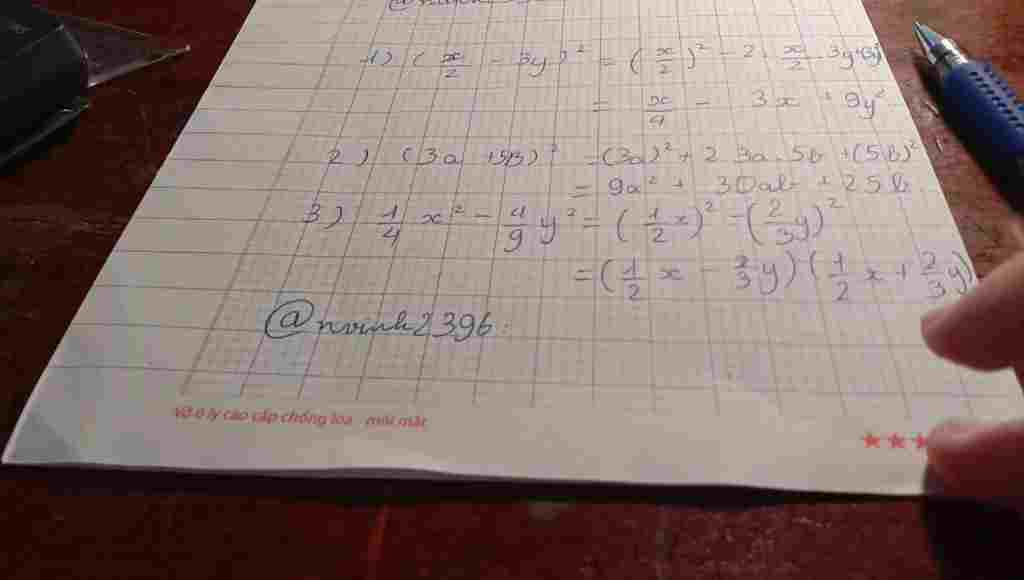 1) (x/2 - 3y)² = (x/2)² - 2 . x/2 . 3y + (3y)²
= x/4 - 3x + 9y²
2) (3a + 5b)² = (3a)² + 2 . 3a . 5b + (5b)²
= 9a² + 30ab + 25b
3) 1/4 x² - 4/9 y² = (1/2 x)² - (2/3 y)²
= (1/2 x - 2/3 y) (1/2 x + 2/3 y)
Vở ô ly cao cấp chống lóa - mỏi mắt